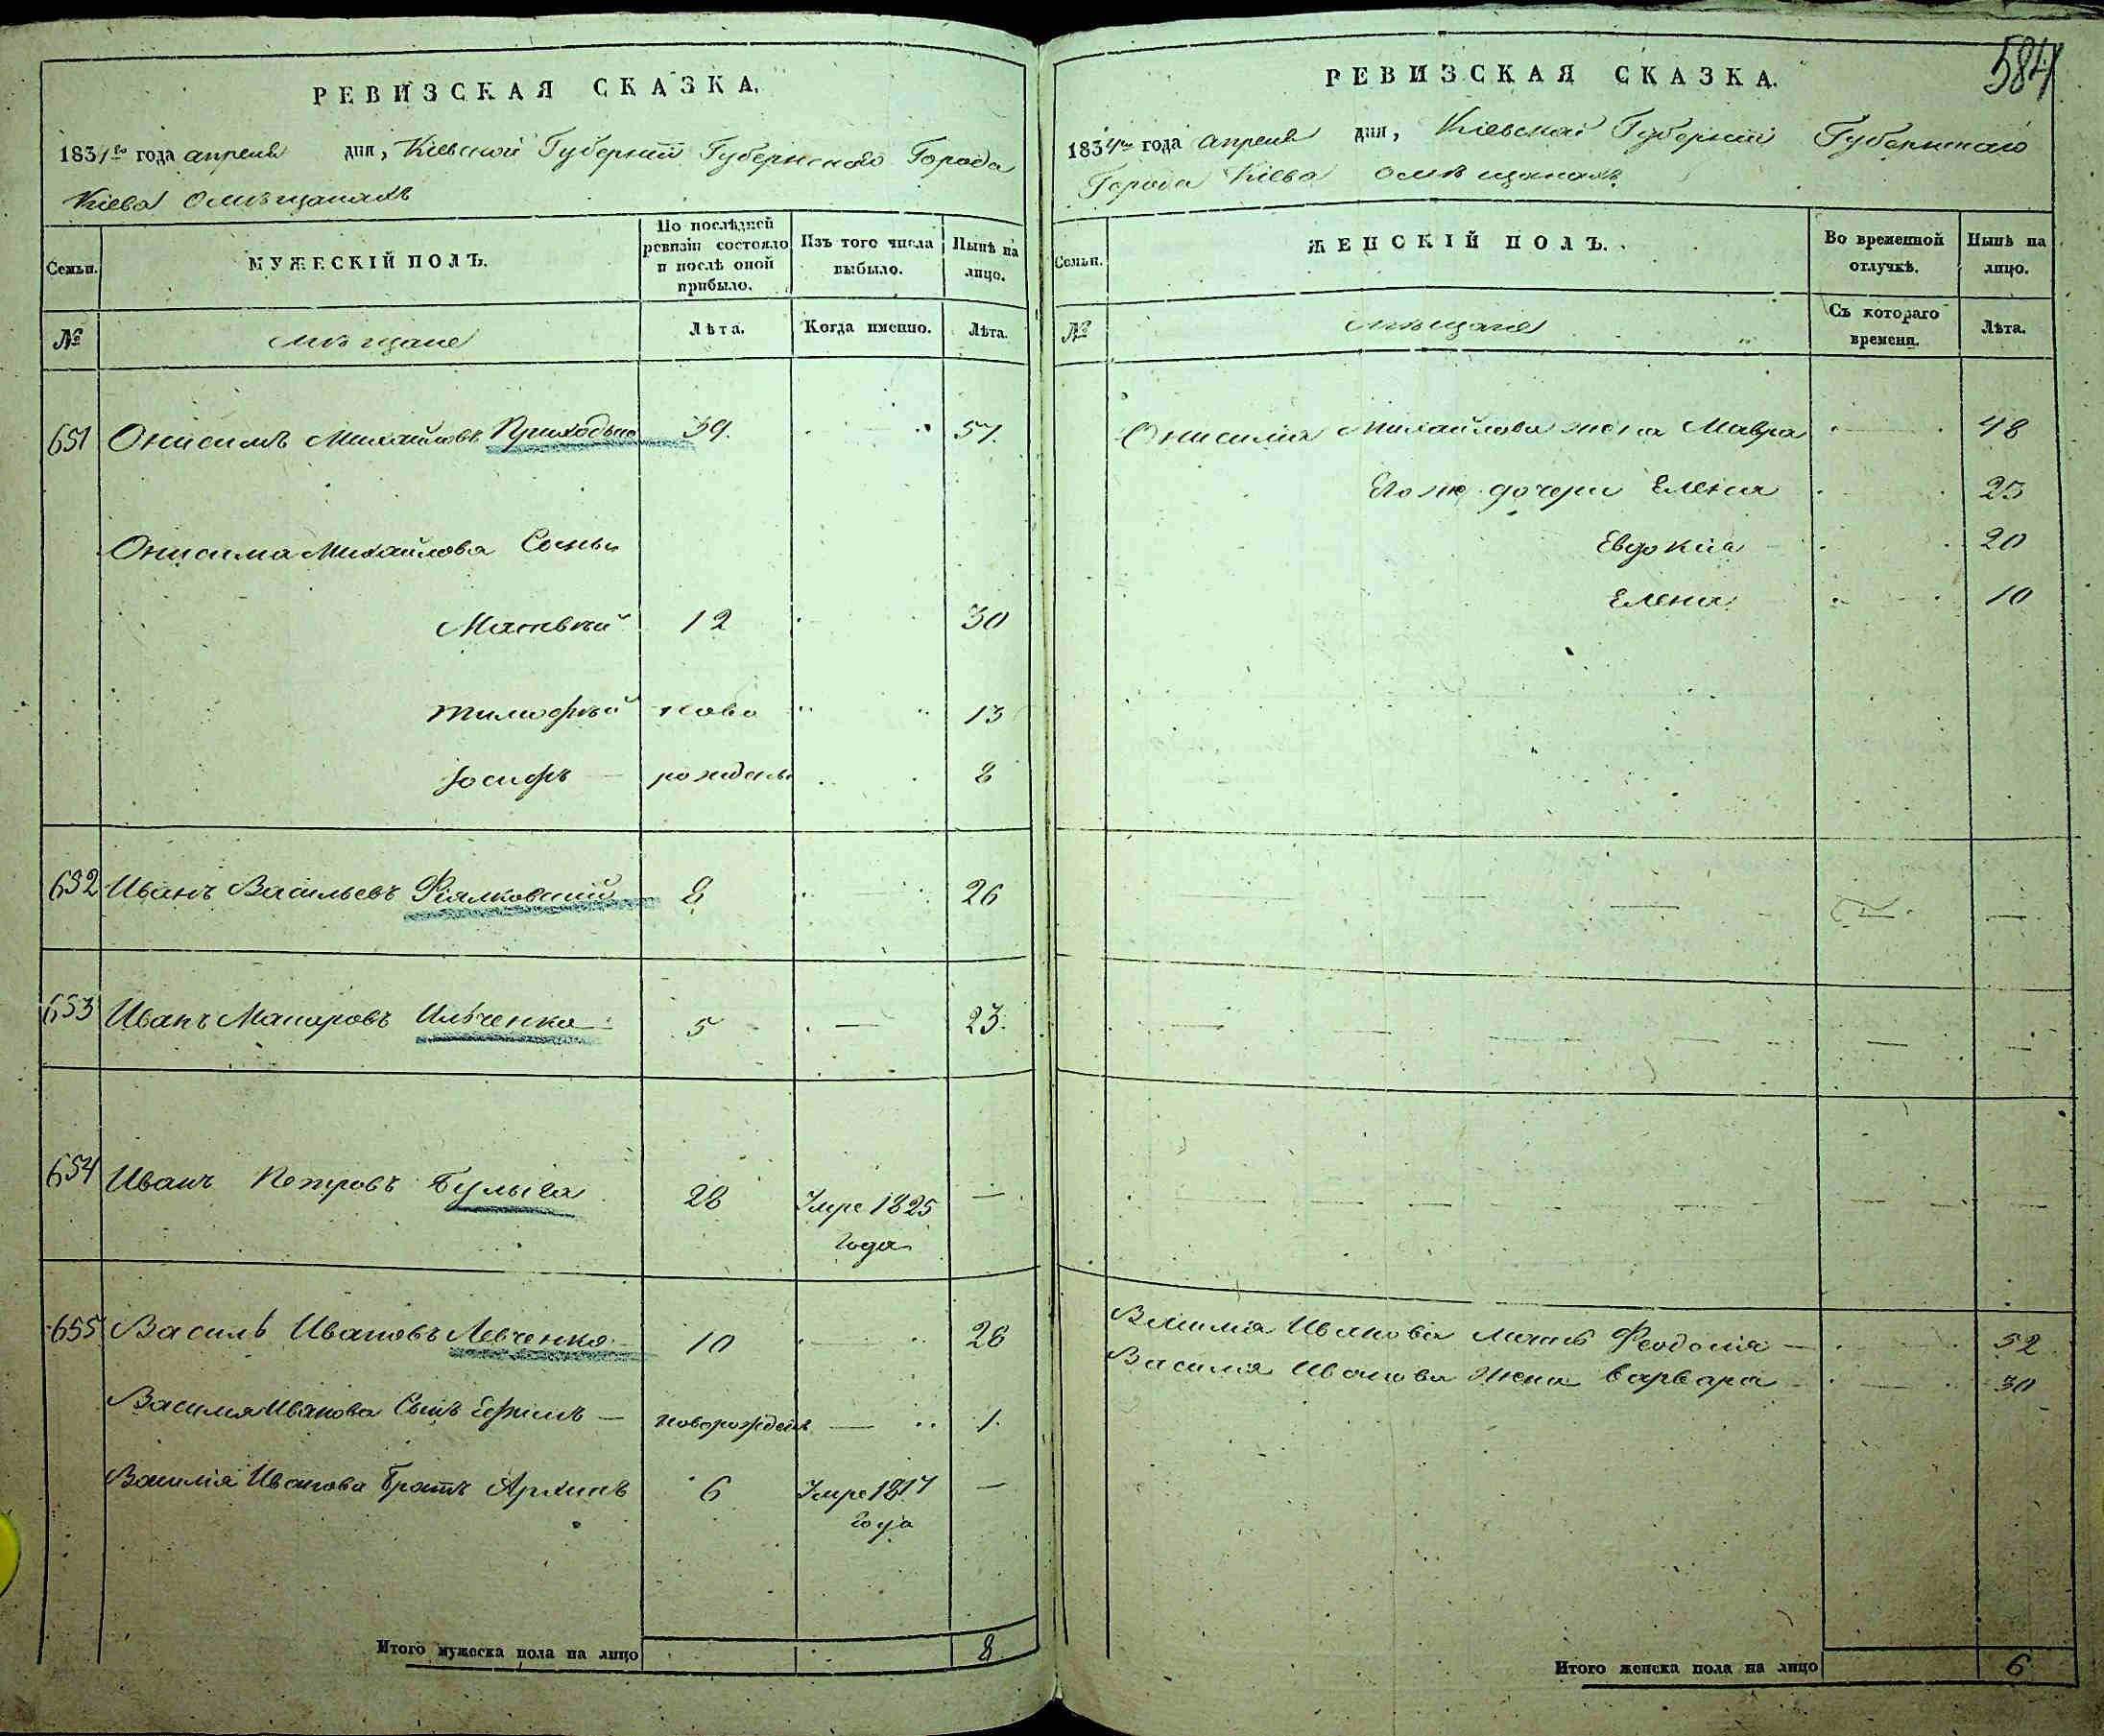 584
РЕВИЗСКАЯ СКАЗКА.
1834го года апреля дня, Кіевской Губерніи Губернскаго Города
Кіева омѣщанахъ
Семьи.
МУЖЕСКІЙ ПОЛЪ.
По послѣдней ревизіи состояло и послѣ оной прибыло.
Изъ того числа выбыло.
Нынѣ на лицо.
№
мѣщане
Лѣта.
Когда именно.
Лѣта.
651 Онисимъ Михайловъ Приходько 39. 57.
Онисима Михайлова Сыны
Матвѣй 12 30
Тимофѣй ново 13
Іосифъ рожденъ 8
652 Иванъ Васильевъ Фіялковскій 8 26
653 Иванъ Макаровъ Ильченко 5 — 23.
654 Иванъ Петровъ Булыга 28 Умре 1825 —
года
655 Василь Ивановъ Левченко 10 28
Василия Иванова Сынъ Ефимъ — новорожденъ — 1.
Василія Иванова братъ Архипъ 6 Умре 1817 —
года
Итого мужеска пола на лицо 8
РЕВИЗСКАЯ СКАЗКА.
1834го года апреля дня, Кіевской Губерніи Губернскаго
Города Кіева омѣщанахъ
Семьи.
ЖЕНСКІЙ ПОЛЪ.
Во временной отлучкѣ.
Нынѣ на лицо.
№
мѣщане
Съ котораго времени.
Лѣта.
Онисима Михайлова жена Мавра 48
Его же дочери Елена 25
Евдокія 20
Елена 10
Василія Иванова мать Феодосія — 52
Василія Иванова жена Варвара 30
Итого женска пола на лицо 6